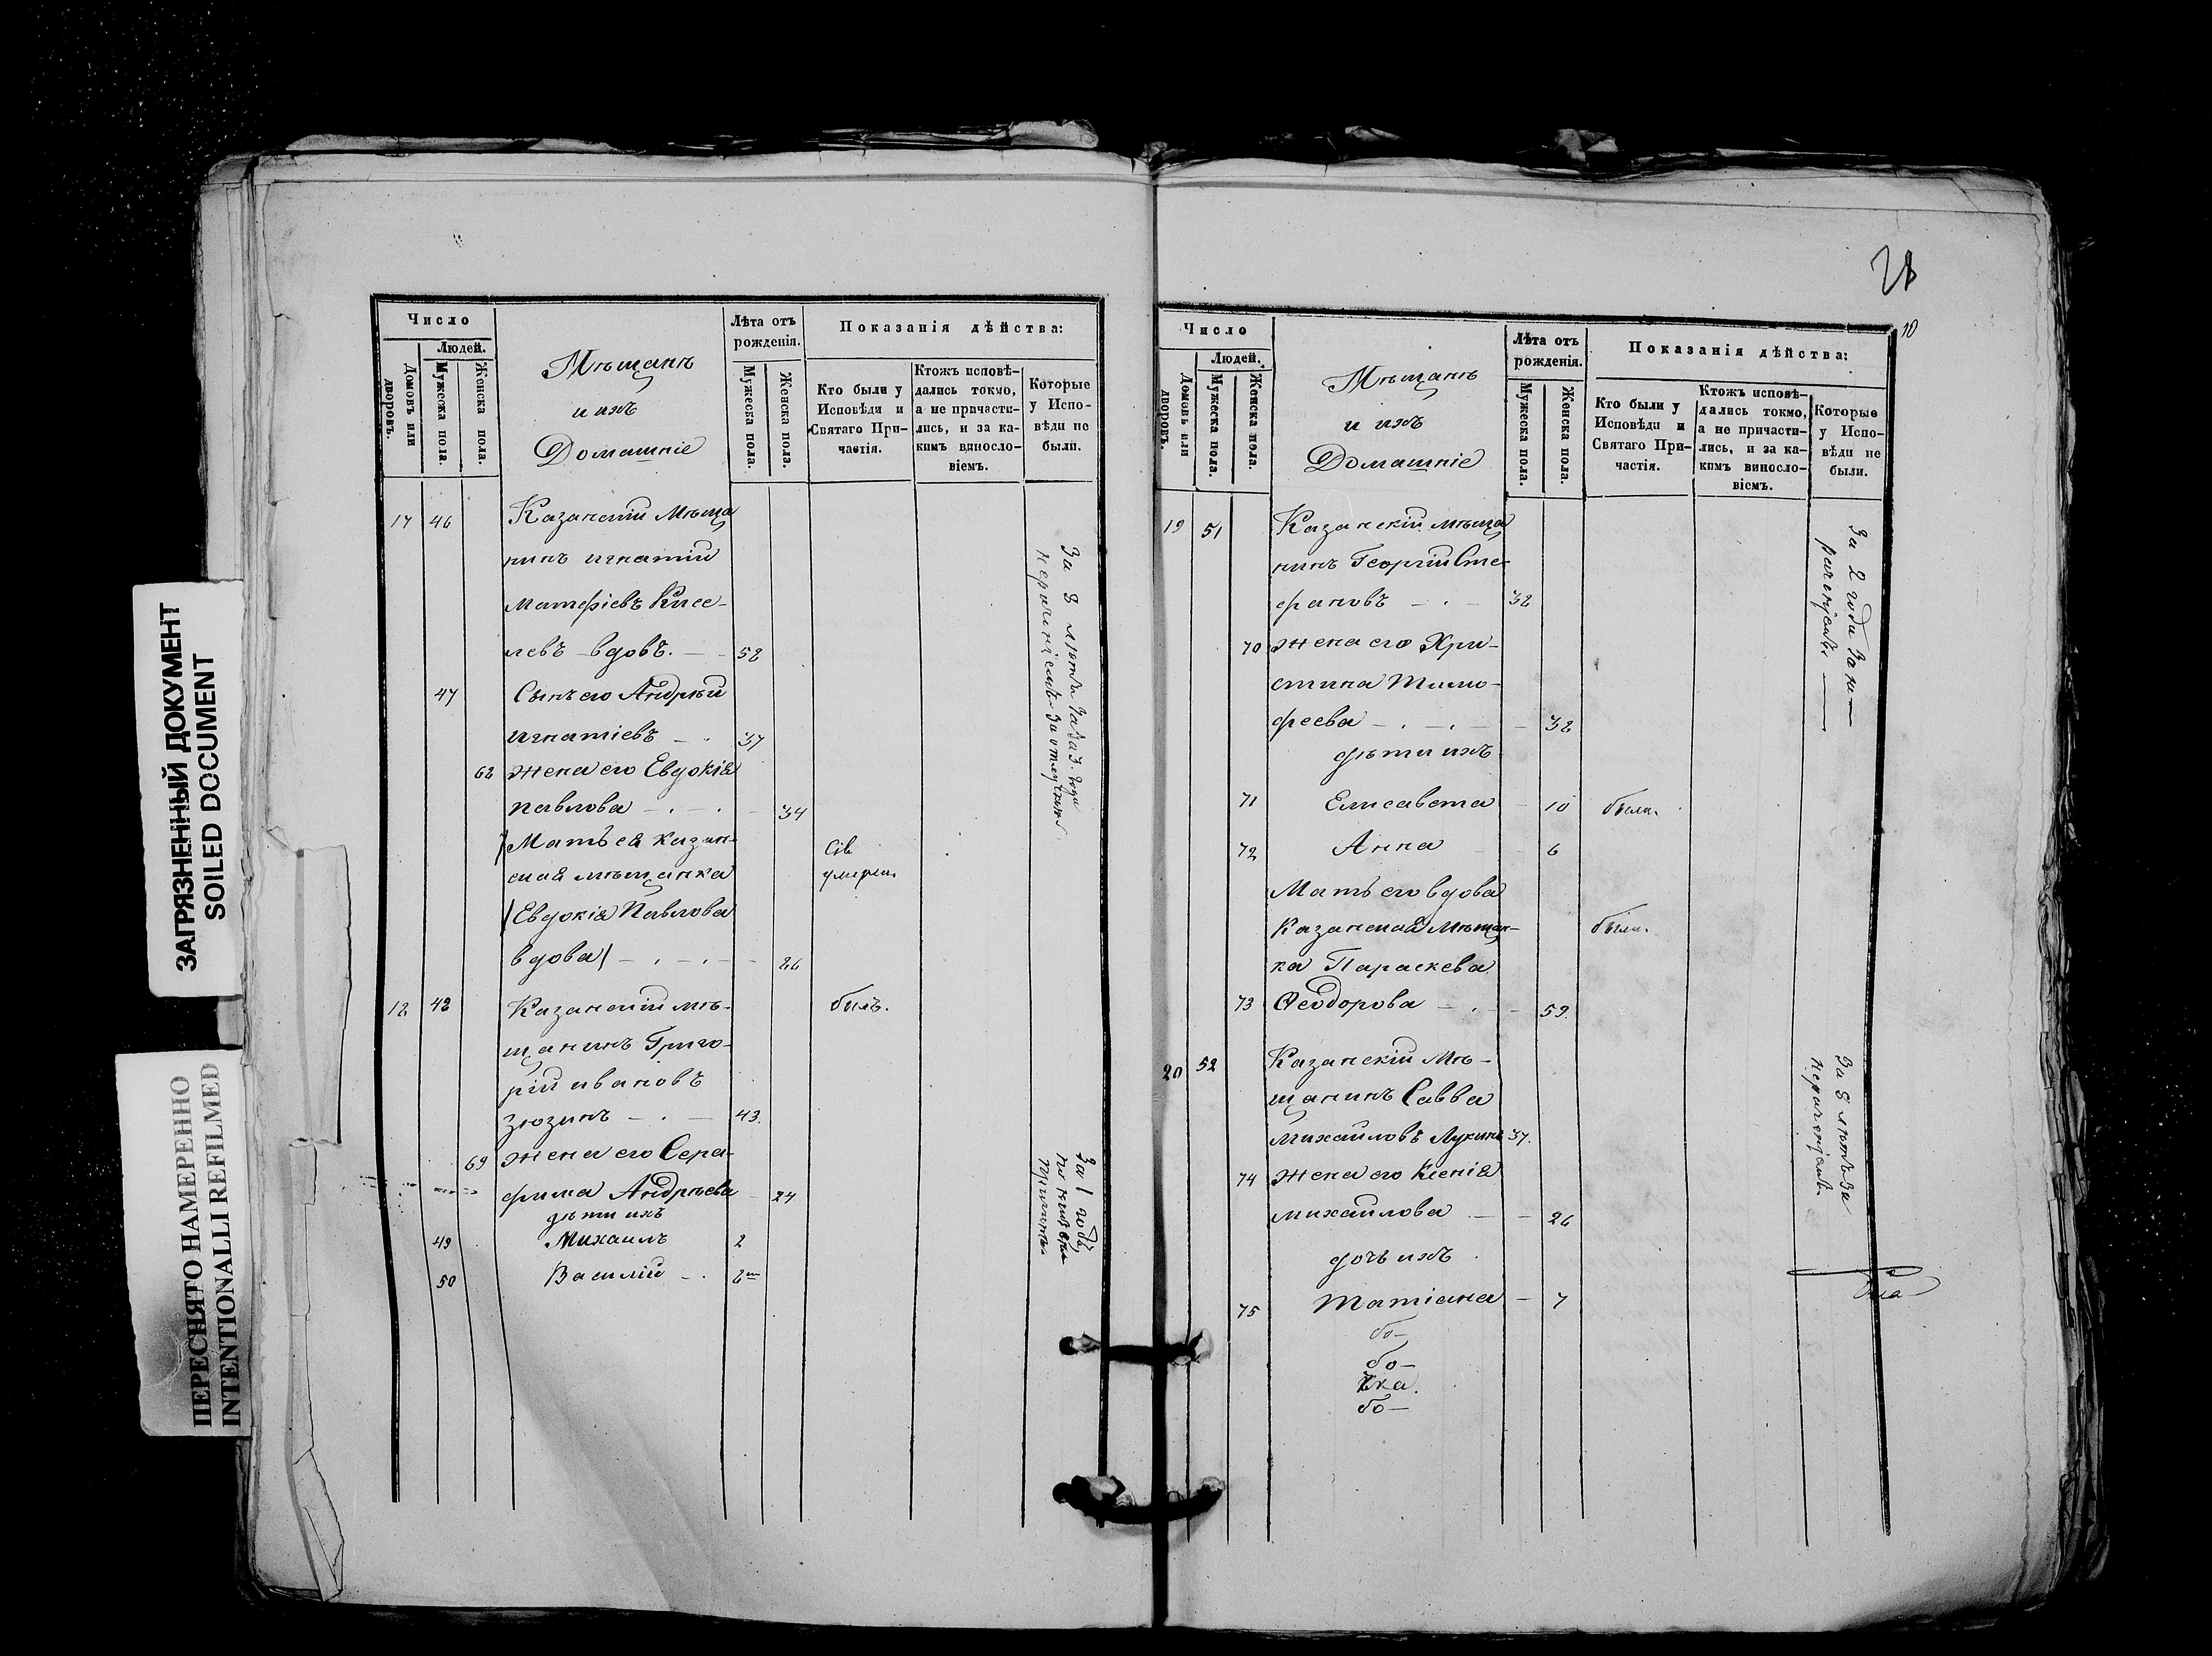 28
10
ЗАГРЯЗНЕННЫЙ ДОКУМЕНТ
SOILED DOCUMENT
ПЕРЕСНЯТО НАМЕРЕННО
INTENTIONALLI REFILMED
Число
Людей.
Домовъ или дворовъ.
Мужеска пола.
Женска пола.
Мѣщанъ
и ихъ
Домашніе
Лѣта отъ
рожденія.
Мужеска пола.
Женска пола.
Показанія дѣйства:
Кто были у
Исповѣди и
Святаго При-
частія.
Ктожъ исповѣ-
дались токмо,
а не причасти-
лись, и за ка-
кимъ винословіемъ.
Которые
у Испо-
вѣди не
были.
17 46 Казанскій мѣща
нинъ Игнатій
Матфіевъ Кисе-
левъ вдовъ. 58
47 Сынъ его Андрей
Игнатіевъ 37
68 Жена его Евдокія
Павлова 34
Мать ея казан-
ская мѣщанка
Евдокія Павлова
вдова
18 48 Казанскій мѣ- былъ.
щанинъ Григо-
рій Ивановъ
Зюзинъ 43.
69 Жена его Сера-
фима Андреева 24
дѣти ихъ
49 Михаилъ 2
50 Василій
Число
Людей.
Домовъ или дворовъ.
Мужеска пола.
Женска пола.
Мѣщанъ
и ихъ
Домашніе
Лѣта отъ
рожденія.
Мужеска пола.
Женска пола.
Показанія дѣйства:
Кто были у
Исповѣди и
Святаго При-
частія.
Ктожъ исповѣ-
дались токмо,
а не причасти-
лись, и за ка-
кимъ винословіемъ.
Которые
у Испо-
вѣди не
были.
19 51 Казанскій мѣща
нинъ Георгій Сте-
фановъ 38
70 Жена его Хри-
стина Тимо-
феева 38
дѣти ихъ
71 Елисавета 10 была.
72 Анна 6
Мать его вдова
Казанская Мѣщан- была.
ка Параскева
73 Ѳеодорова 59.
20 52 Казанскій Мѣ-
щанинъ Савва
Михайловъ Лукинъ 37.
74 Жена его Ксенія
Михайлова 26
дочь ихъ
75 Татіана 7